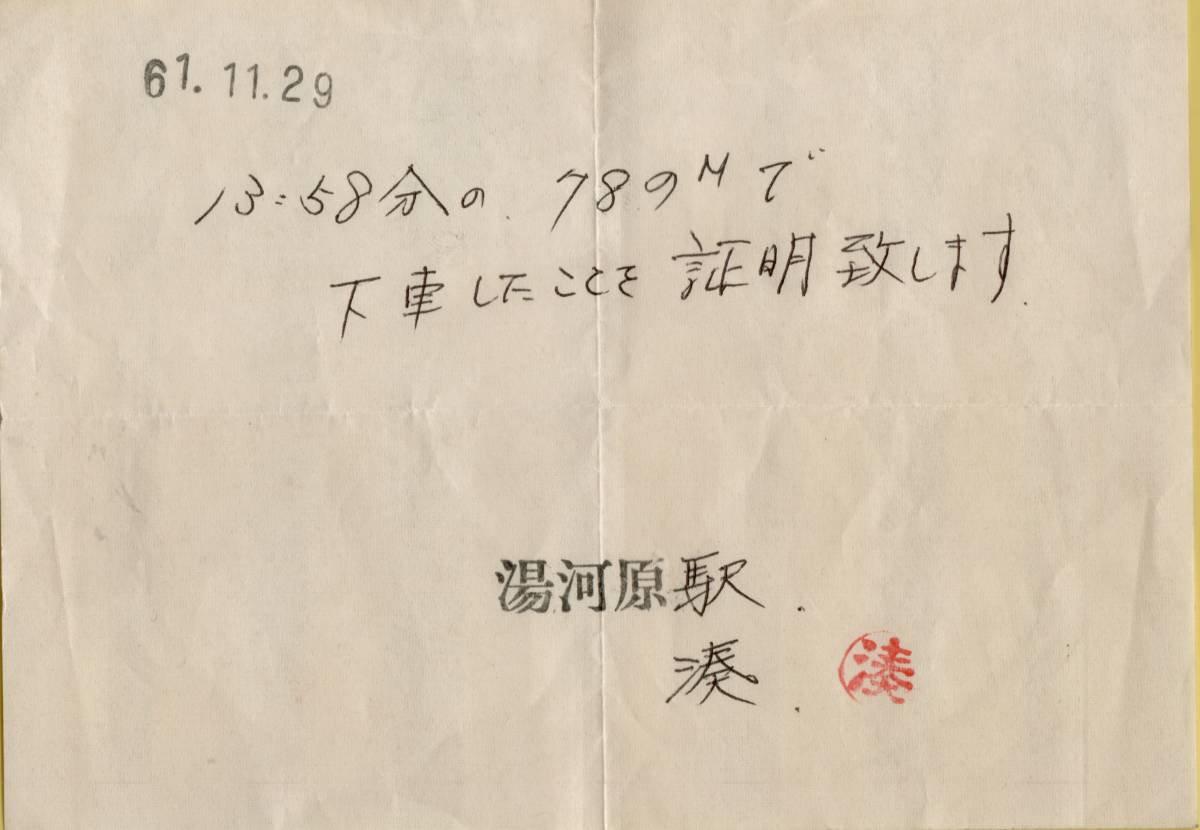 61.11.29
13:58分の 78のMで
下車したことを証明致します.
湯河原駅.
湊. 湊